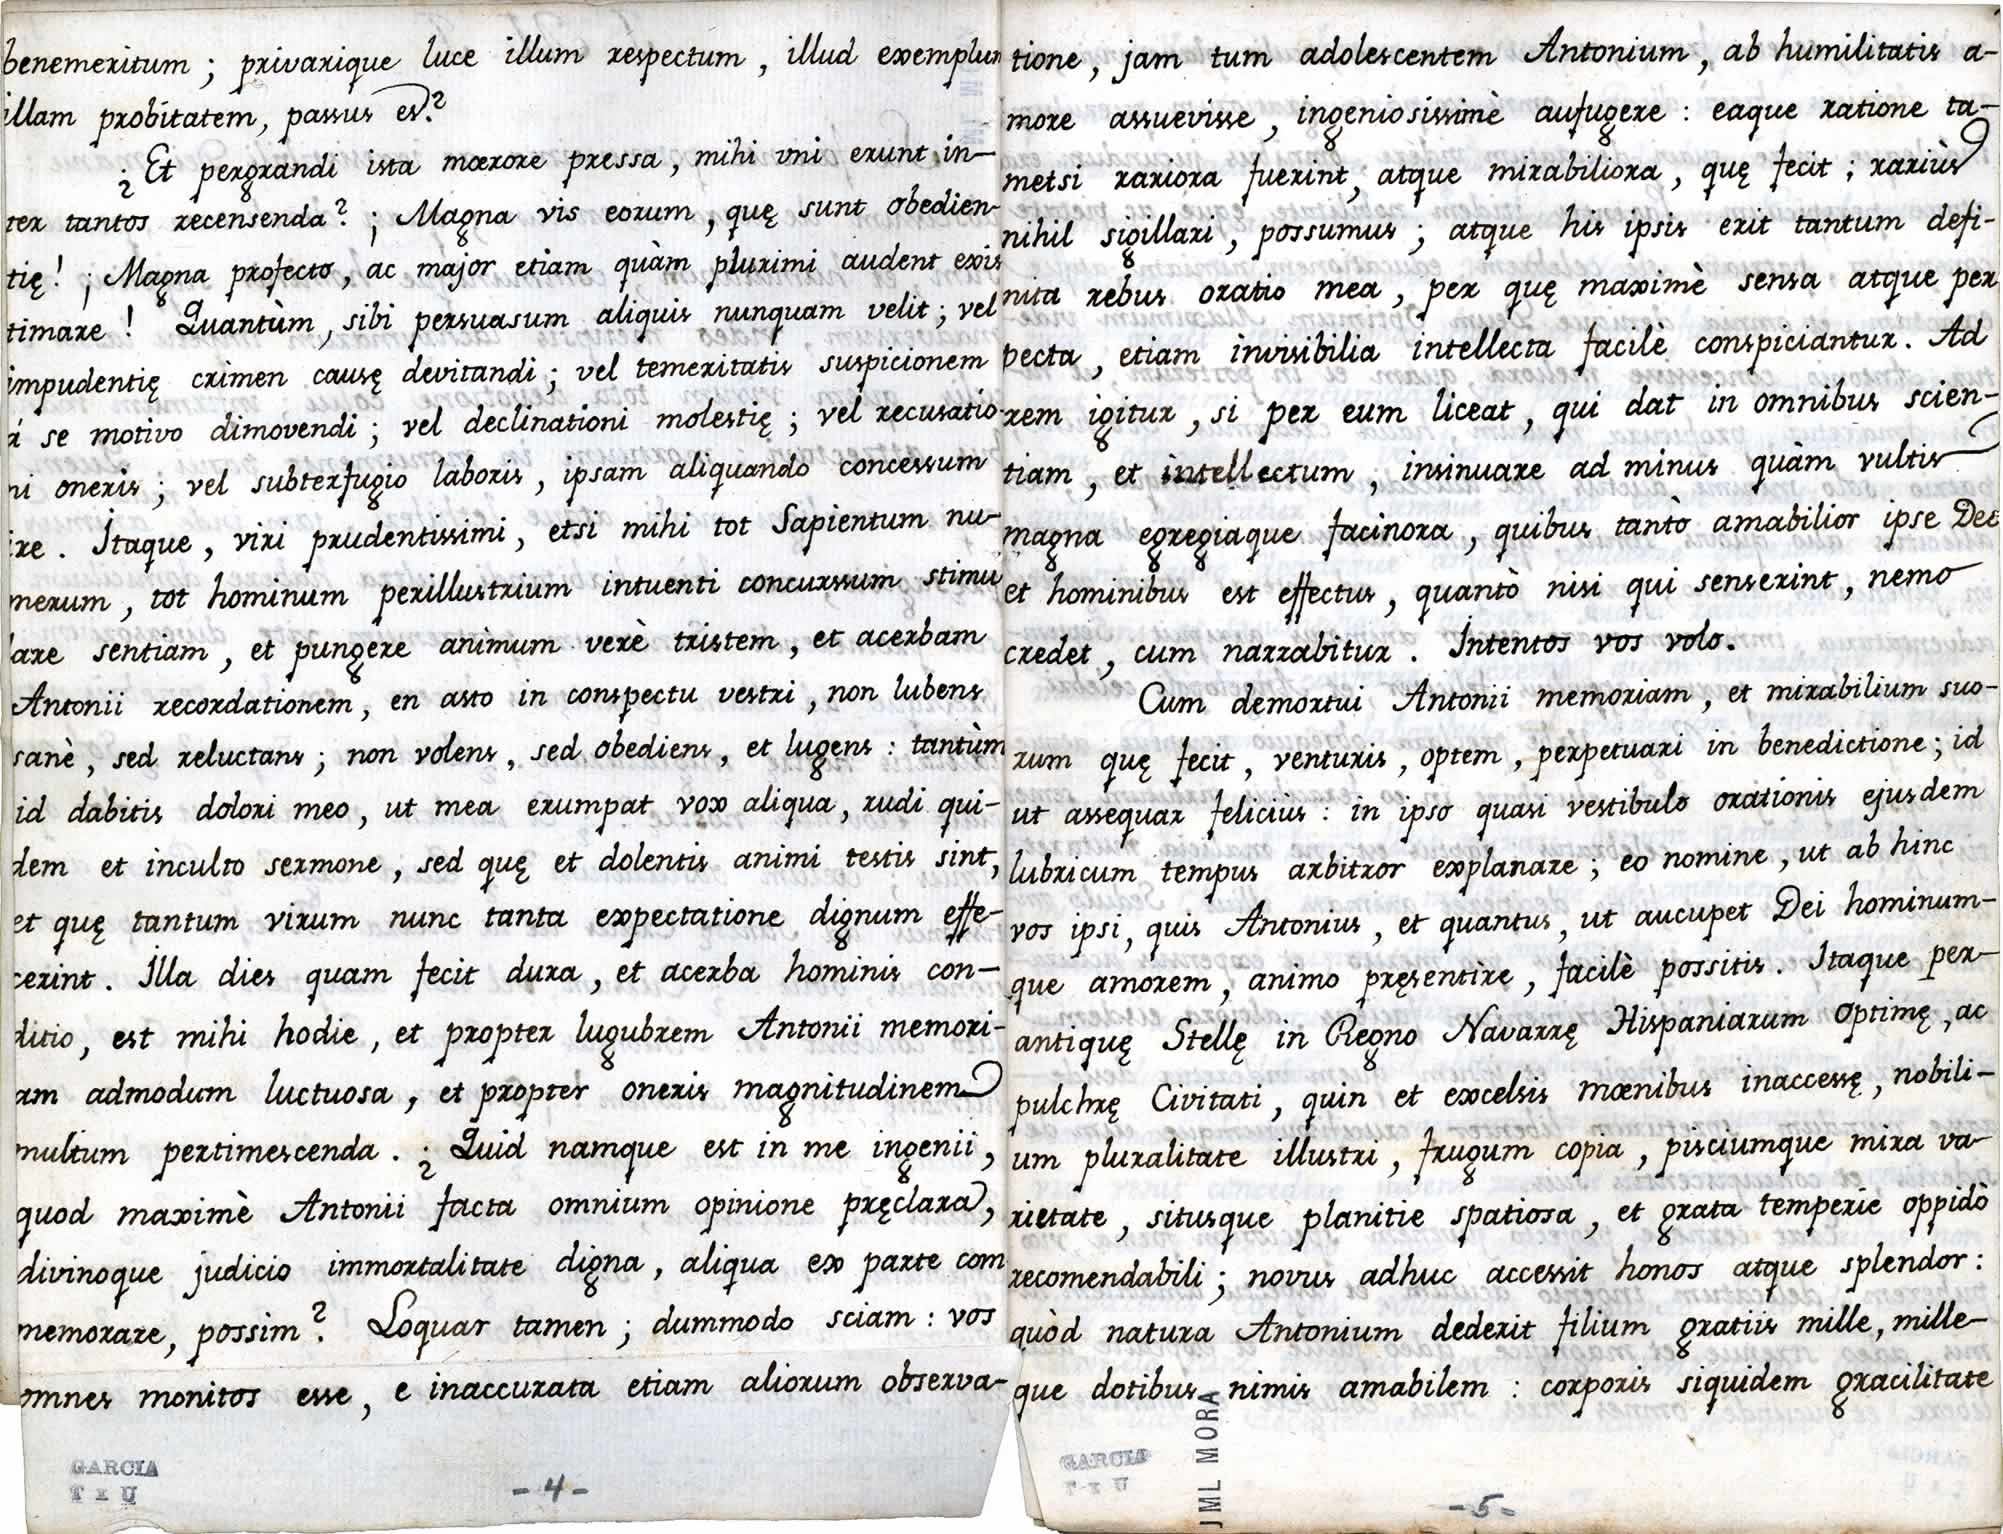 benemeritum ; privarique luce illum respectum , illud exemplum
illam probitatem, passus es?
¿ Et pergrandi ista mœrore pressa , mihi vni erunt in-
ter tantos recensenda? ¡ Magna vis eorum , quę sunt obedien-
tię ! ¡ Magna profecto, ac major etiam quàm plurimi audent exis
timare ! Quantùm, sibi persuasum aliquis nunquam velit ; vel
impudentię crimen causę devitandi ; vel temeritatis suspicionem
à se motivo dimovendi ; vel declinationi molestię ; vel recusatio-
ni oneris ; vel subterfugio laboris , ipsam aliquando concessum
ire . Itaque , viri prudentissimi , etsi mihi tot Sapientum nu-
merum , tot hominum perillustrium intuenti concurssum stimu
lare sentiam , et pungere animum verè tristem , et acerbam
Antonii recordationem , en asto in conspectu vestri , non lubens
sanè , sed reluctans ; non volens , sed obediens , et lugens : tantùm
id dabitis dolori meo , ut mea erumpat vox aliqua , rudi qui-
dem et inculto sermone , sed quę et dolentis animi testis sint,
et quę tantum virum nunc tanta expectatione dignum effe-
cerint . Illa dies quam fecit dura , et acerba hominis con-
ditio , est mihi hodie , et propter lugubrem Antonii memori-
am admodum luctuosa , et propter oneris magnitudinem
multum pertimescenda . ¿ Quid namque est in me ingenii ,
quod maximè Antonii facta omnium opinione pręclara ,
divinoque judicio immortalitate digna , aliqua ex parte com
memorare , possim ? Loquar tamen ; dummodo sciam : vos
omnes monitos esse , e inaccurata etiam aliorum observa-
GARCIA
T x U
- 4 -
tione , jam tum adolescentem Antonium , ab humilitatis a-
more assuevisse , ingeniosissimè aufugere : eaque ratione ta-
metsi rariora fuerint , atque mirabiliora , quę fecit ; rariùs
nihil sigillari , possumus ; atque his ipsis erit tantum defi-
nita rebus oratio mea , per quę maximè sensa atque per
pecta , etiam invisibilia intellecta facilè conspiciantur . Ad
rem igitur , si per eum liceat , qui dat in omnibus scien-
tiam , et intellectum , insinuare ad minus quàm vultis
magna egregiaque facinora , quibus tantò amabilior ipse Deo
et hominibus est effectus , quantò nisi qui senserint , nemo
credet , cum narrabitur . Intentos vos volo.
Cum demortui Antonii memoriam , et mirabilium suo-
rum quę fecit , venturis , optem , perpetuari in benedictione ; id
ut assequar feliciùs : in ipso quasi vestibulo orationis ejusdem
lubricum tempus arbitror explanare ; eo nomine , ut ab hinc
vos ipsi , quis Antonius , et quantus , ut aucupet Dei hominum-
que amorem , animo pręsentire , facilè possitis . Itaque per-
antiquę Stellę in Regno Navarrę Hispaniarum optimę , ac
pulchrę Civitati , quin et excelsis mœnibus inaccessę , nobili-
um pluralitate illustri , frugum copia , pisciumque mira va-
rietate , situsque planitie spatiosa , et grata temperie oppidò
recomendabili ; novus adhuc accessit honos atque splendor :
quòd natura Antonium dederit filium gratiis mille , mille-
que dotibus nimis amabilem : corporis siquidem gracilitate
GARCIA
T x U
JML MORA
- 5 -